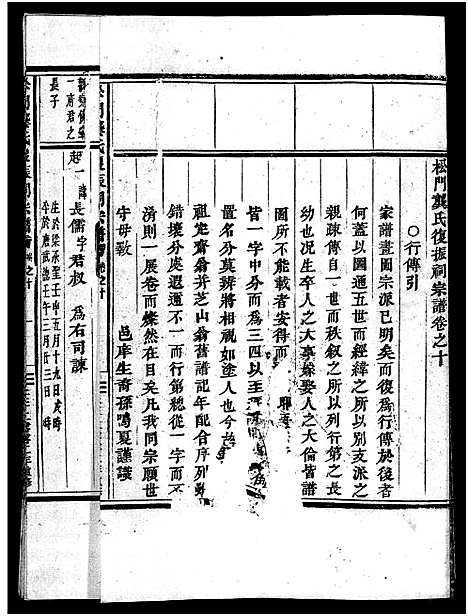 松門龔氏復振祠宗譜卷之十
○行傳引
家譜畫圖宗派已明矣而復爲行傳於後者
何蓋以圖通五世而經緯之所以別支派之
親疎傳自一世而秩叙之所以列行第之長
幼也况生卒人之大事嫁娶人之大倫皆譜
圖所不能載者安得而
皆一字中分而爲三四以至
置名分莫辨將相視如塗人也
祖光齋翁并芝山翁舊譜記年配合序列
錯壞分處遐邇不一而行第總從一字而
淆則一展卷而燦然在目矣凡我同宗願世
守毋斁
邑庠生裔孫鳴夏謹識
一府君之
長子
起一諱長儒字君叔爲右司諫
生於梁承聖壬申五月十九日戌時
卒於唐武德壬午三月廿三日時